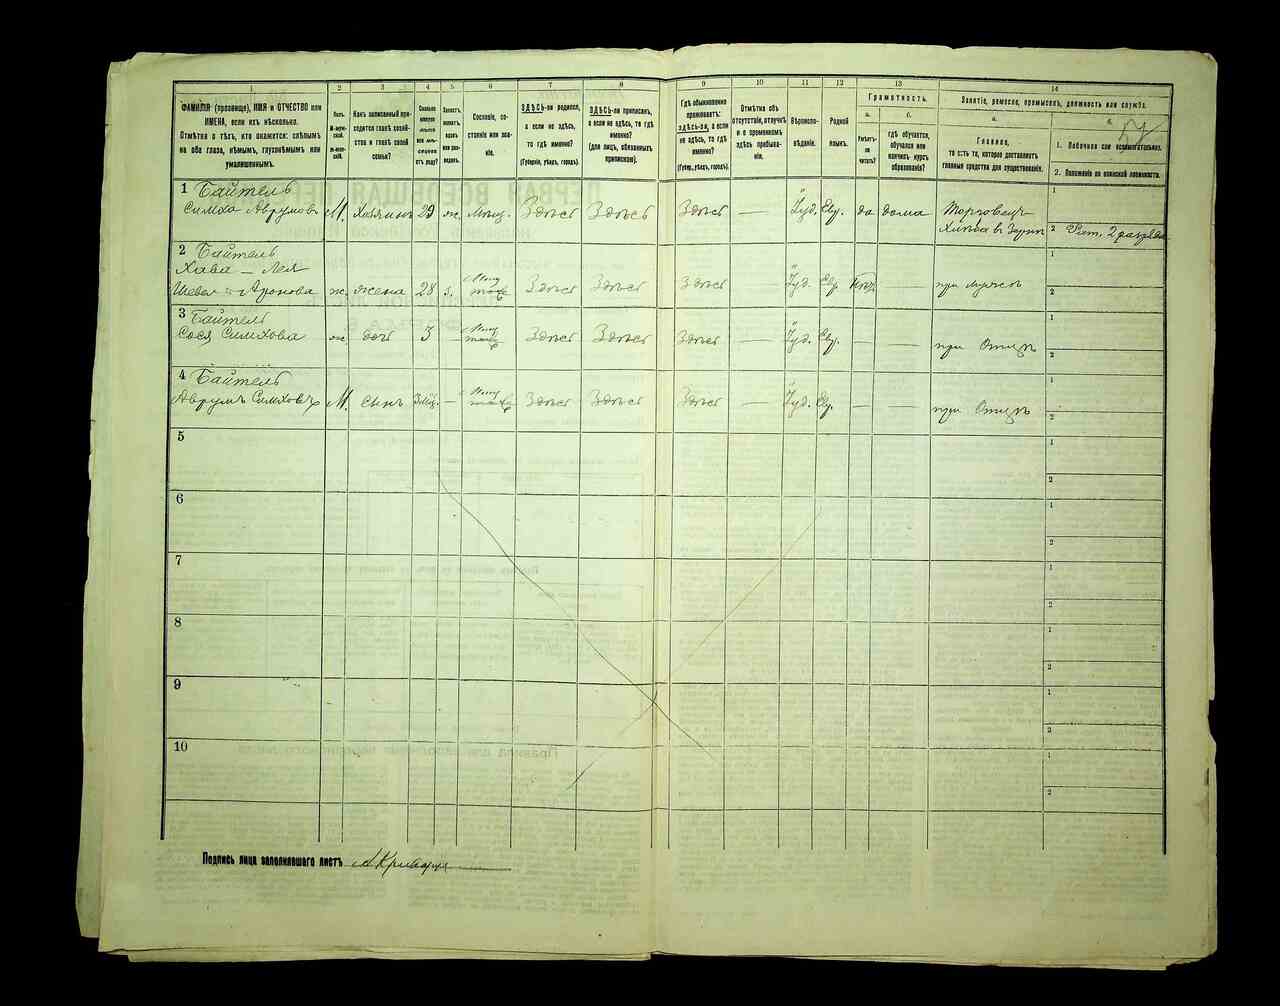 1 2 3 4 5 6 7 8 9 10 11 12 13 14
ФАМИЛІЯ (прозвище), ИМЯ и ОТЧЕСТВО или
ИМЕНА, если ихъ нѣсколько.
Отмѣтка о тѣхъ, кто окажется: слѣпымъ
на оба глаза, нѣмымъ, глухонѣмымъ или
умалишеннымъ.
Полъ.
М-мужской.
Ж-женскій.
Какъ записанный приходится
главѣ хозяйства
и главѣ своей
семьи?
Сколько
минуло
лѣтъ
или мѣсяцевъ
отъ роду?
Холостъ,
женатъ,
вдовъ
или разведенъ.
Сословіе, состояніе
или званіе.
ЗДѢСЬ-ли родился,
а если не здѣсь,
то гдѣ именно?
(Губернія, уѣздъ, городъ).
ЗДѢСЬ-ли приписанъ,
а если не здѣсь, то гдѣ
именно?
(для лицъ, обязанныхъ
припискою).
Гдѣ обыкновенно
проживаетъ:
здѣсь-ли, а если
не здѣсь, то гдѣ
именно?
(Губер., уѣздъ, городъ).
Отмѣтка объ
отсутствіи, отлучкѣ
и о временномъ
здѣсь пребываніи.
Вѣроисповѣданіе.
Родной
языкъ.
Грамотность.
а.
Умѣетъ-ли
читать?
б.
гдѣ обучается,
обучался или
кончилъ курсъ
образованія?
Занятіе, ремесло, промыселъ, должность или служба.
а.
Главное,
то есть то, которое доставляетъ
главныя средства для существованія.
б.
1. Побочное или вспомогательное.
2. Положеніе по воинской повинности.
1 Байтель
Симха Аврумовъ М. Хозяинъ 29 ж. Мѣщ. Здѣсь Здѣсь Здѣсь — Іуд. Евр. да дома Торговецъ
2
2 Байтель
Хава – Лея
Аронова ж. жена 28 з. Здѣсь Здѣсь Здѣсь — Іуд. Евр. — при мужѣ
3 Байтель
Сося Симхова ж дочь 3 — Здѣсь Здѣсь Здѣсь — Іуд. Евр. — — при Отцѣ
4 Байтель
Аврумъ Симховъ М. сынъ 3 мѣс. — Здѣсь Здѣсь Здѣсь — Іуд. Евр. — — при Отцѣ
5
6
7
8
9
10
Подпись лица заполнявшаго листъ